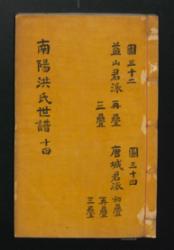 圖三十二
益山君派 再疊
三疊
圖三十四
唐城君派 初疊
再疊
三疊
南陽洪氏世譜 十四